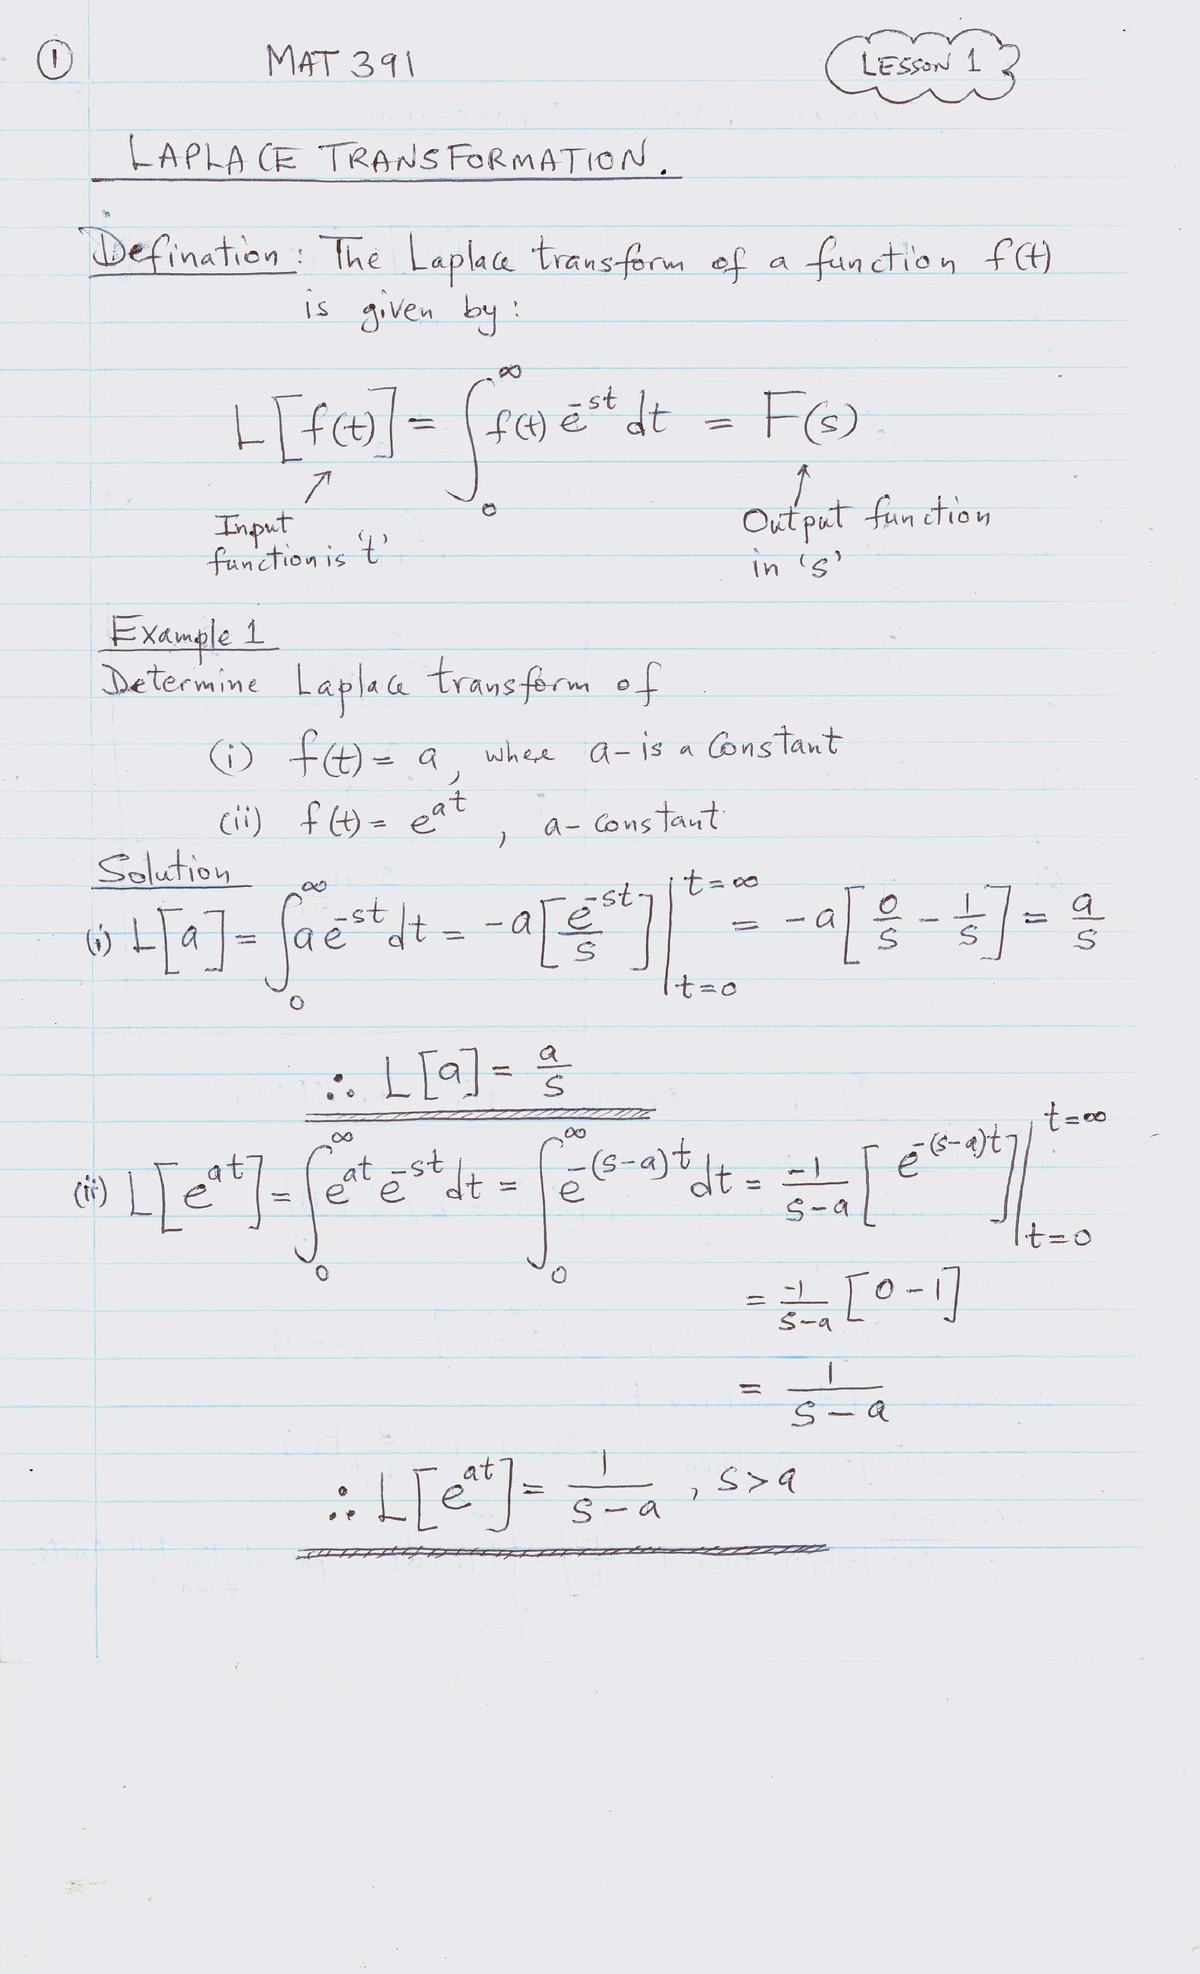 ① MAT 391 LESSON 1
LAPLACE TRANSFORMATION.
Defination : The Laplace transform of a function f(t)
is given by :
L[f(t)] = ∫₀^∞ f(t) e^-st dt = F(s)
Input Output function
function is 't' in 's'
Example 1
Determine Laplace transform of
(i) f(t) = a, where a- is a Constant
(ii) f(t) = e^at, a- constant
Solution
(i) L[a] = ∫₀^∞ a e^-st dt = -a[e^-st/s] |_{t=0}^{t=∞} = -a[0/s - 1/s] = a/s
∴ L[a] = a/s
(ii) L[e^at] = ∫₀^∞ e^at e^-st dt = ∫₀^∞ e^-(s-a)t dt = -1/s-a [e^-(s-a)t] |_{t=0}^{t=∞}
= -1/s-a [0-1]
= 1/s-a
∴ L[e^at] = 1/s-a , s>a